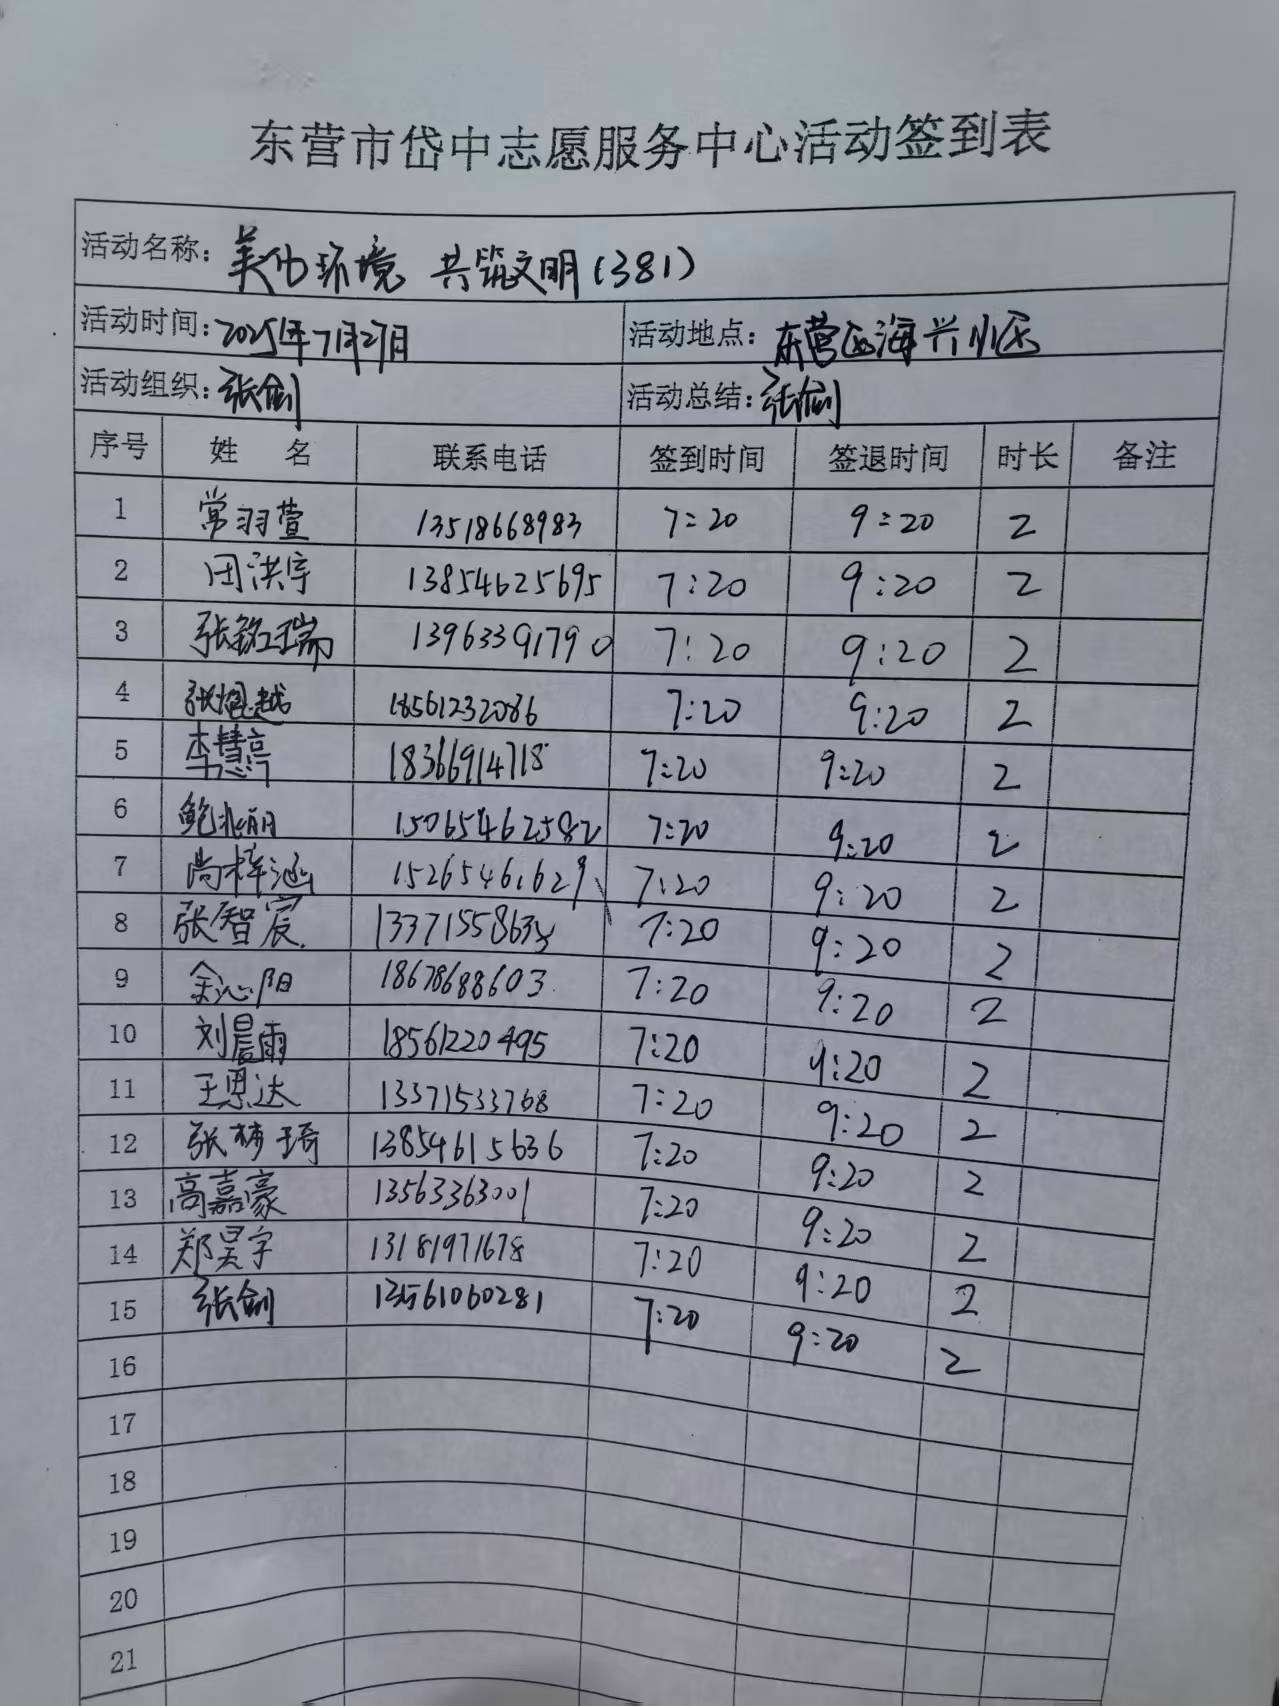 东营市岱中志愿服务中心活动签到表
活动名称：美化环境 共筑文明(381)
活动时间：2025年7月27日 活动地点：东营区海兴小区
活动组织：张剑 活动总结：张剑
序号 姓名 联系电话 签到时间 签退时间 时长 备注
1 常羽萱 13518668983 7:20 9:20 2
2 田洪宇 13854625695 7:20 9:20 2
3 张铭瑞 13963391790 7:20 9:20 2
4 张煜越 18561232086 7:20 9:20 2
5 李慧亭 18366914718 7:20 9:20 2
6 鲍兆明 15065462582 7:20 9:20 2
7 尚梓涵 15265461629 7:20 9:20 2
8 张智宸 7:20 9:20 2
9 余沁阳 18678688603 7:20 9:20 2
10 刘晨雨 18561220495 7:20 9:20 2
11 王思达 13371533768 7:20 9:20 2
12 张梦琦 13854615636 7:20 9:20 2
13 高嘉豪 13563363001 7:20 9:20 2
14 郑昊宇 13181971678 7:20 9:20 2
15 张剑 13561060281 7:20 9:20 2
16
17
18
19
20
21